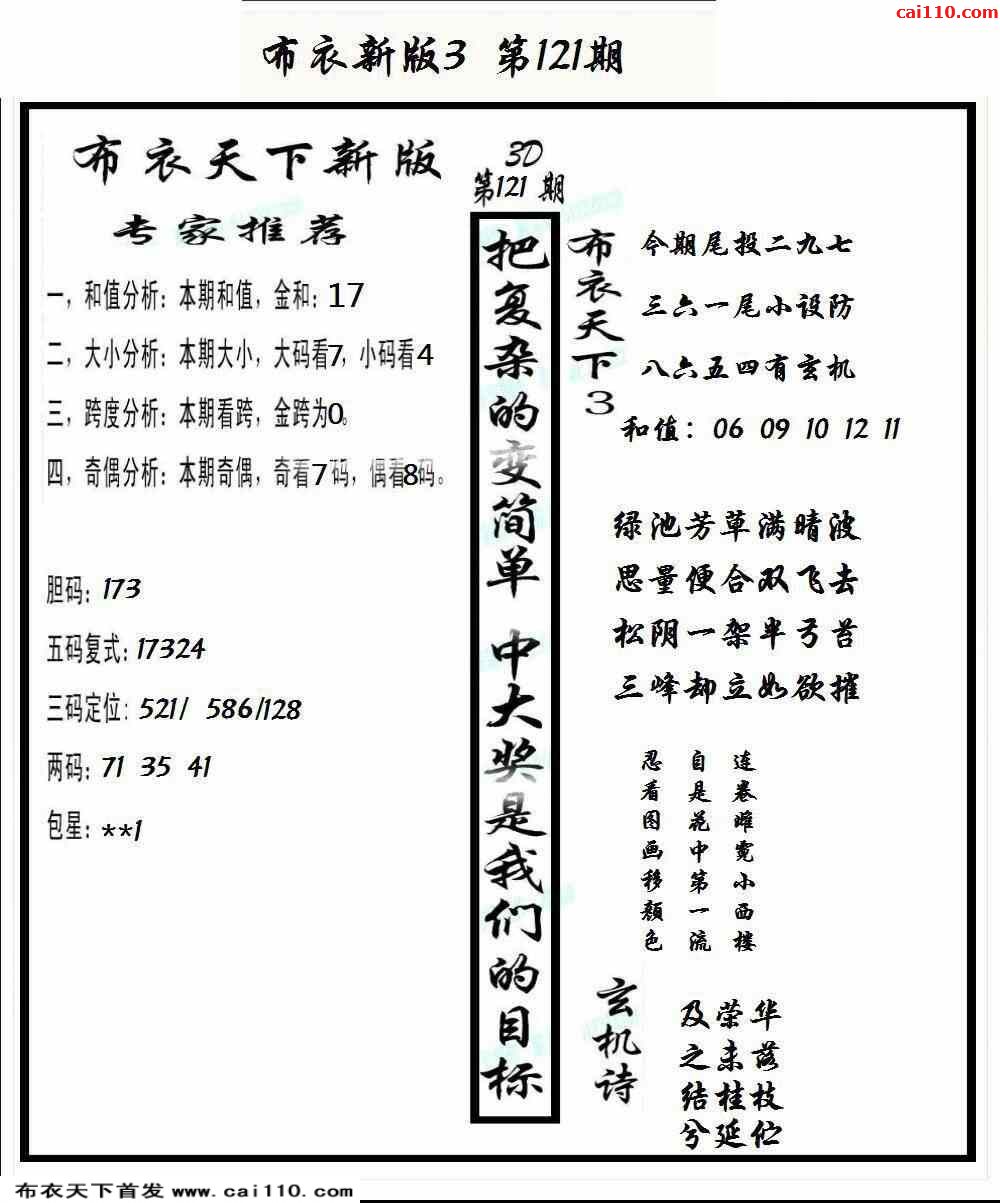 cai110.com
布衣新版3 第121期
布衣天下新版
专家推荐
一，和值分析：本期和值，金和：17
二，大小分析：本期大小，大码看7，小码看4
三，跨度分析：本期看跨，金跨为0。
四，奇偶分析：本期奇偶，奇看7码，偶看8码。
胆码：173
五码复式：17324
三码定位：521/ 586/128
两码：71 35 41
包星：**1
3D
第121期
把复杂的变简单 中大奖是我们的目标
布衣天下3
今期尾投二九七
三六一尾小设防
八六五四有玄机
和值：06 09 10 12 11
绿池芳草满晴波
思量便合双飞去
松阴一架半弓苔
三峰却立如欲摧
连卷雌霓小西楼
自是花中第一流
忍看图画移颜色
玄机诗
及荣华
之未落
结桂枝
兮延伫
布衣天下首发 www.cai110.com